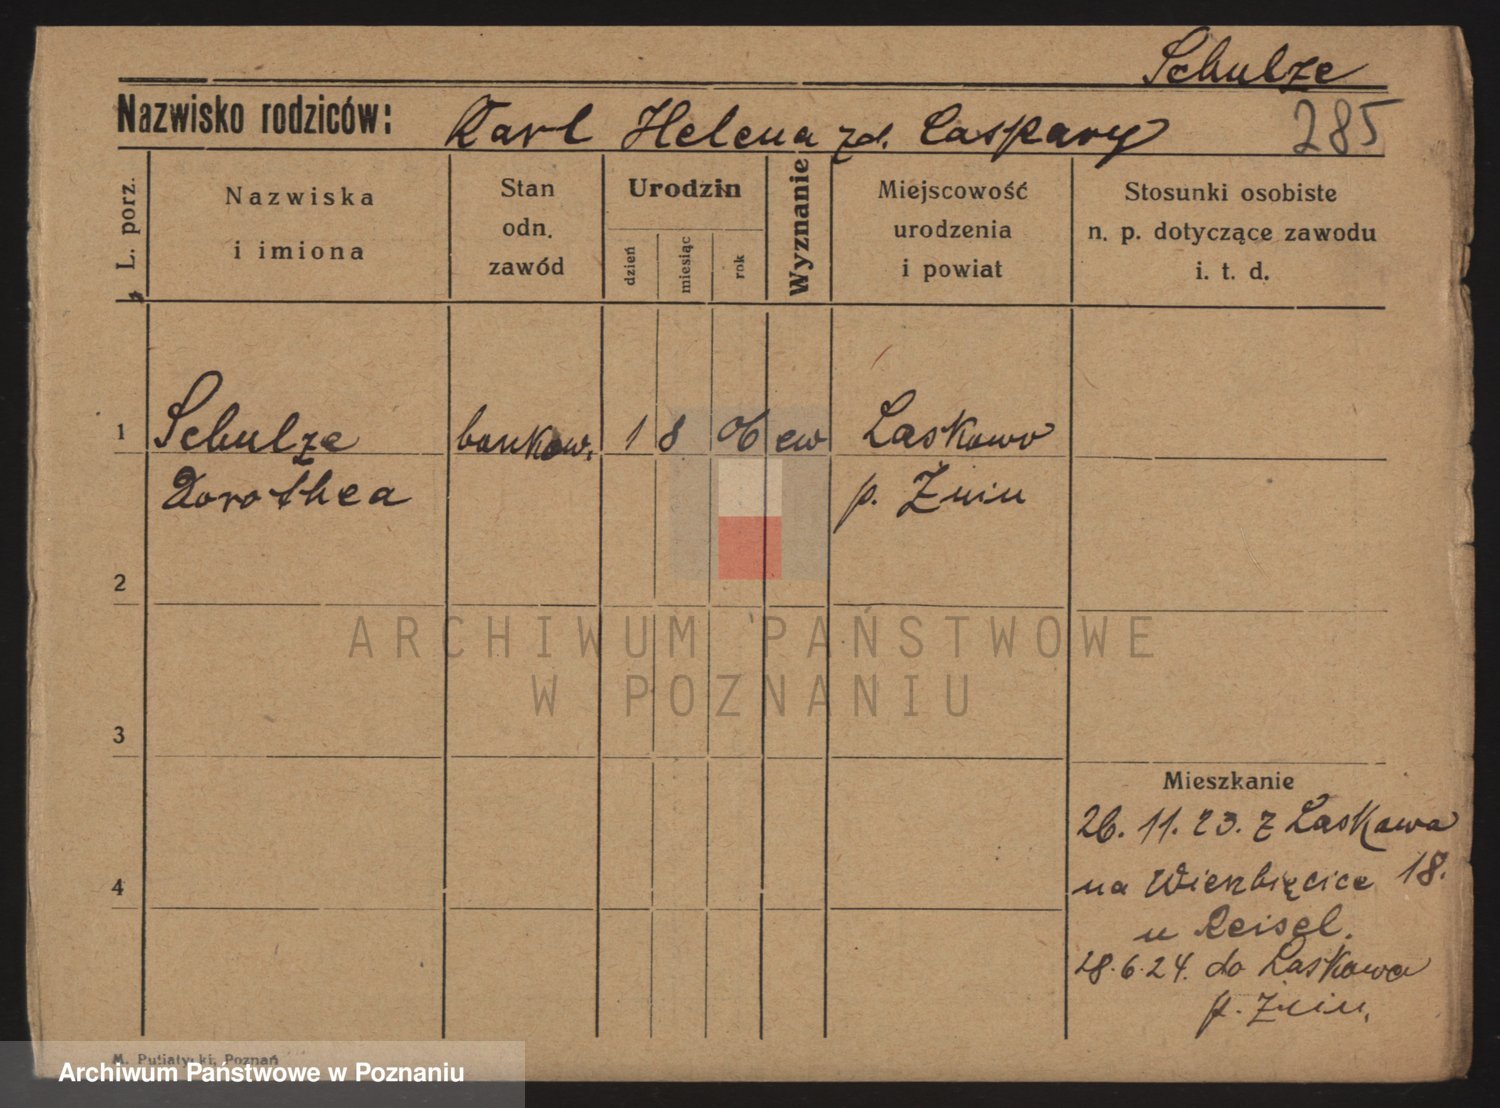 Schulze
Nazwisko rodziców: Karl Helena zd. Caspary 285
L. porz.
Nazwiska
i imiona
Stan
odn.
zawód
Urodzin
dzień
miesiąc
rok
Wyznanie
Miejscowość
urodzenia
i powiat
Stosunki osobiste
n. p. dotyczące zawodu
i. t. d.
1 Schulze bankow. 1 8 06 ew Laskowo
Dorothea p. Żnin
2
ARCHIWUM PAŃSTWOWE
W POZNANIU
3
Mieszkanie
26. 11. 23. z Laskowa
na Wierzbięcice 18.
4
u Reisel.
28.6.24. do Laskowa
p. Żnin.
M. Putiatycki, Poznań
Archiwum Państwowe w Poznaniu